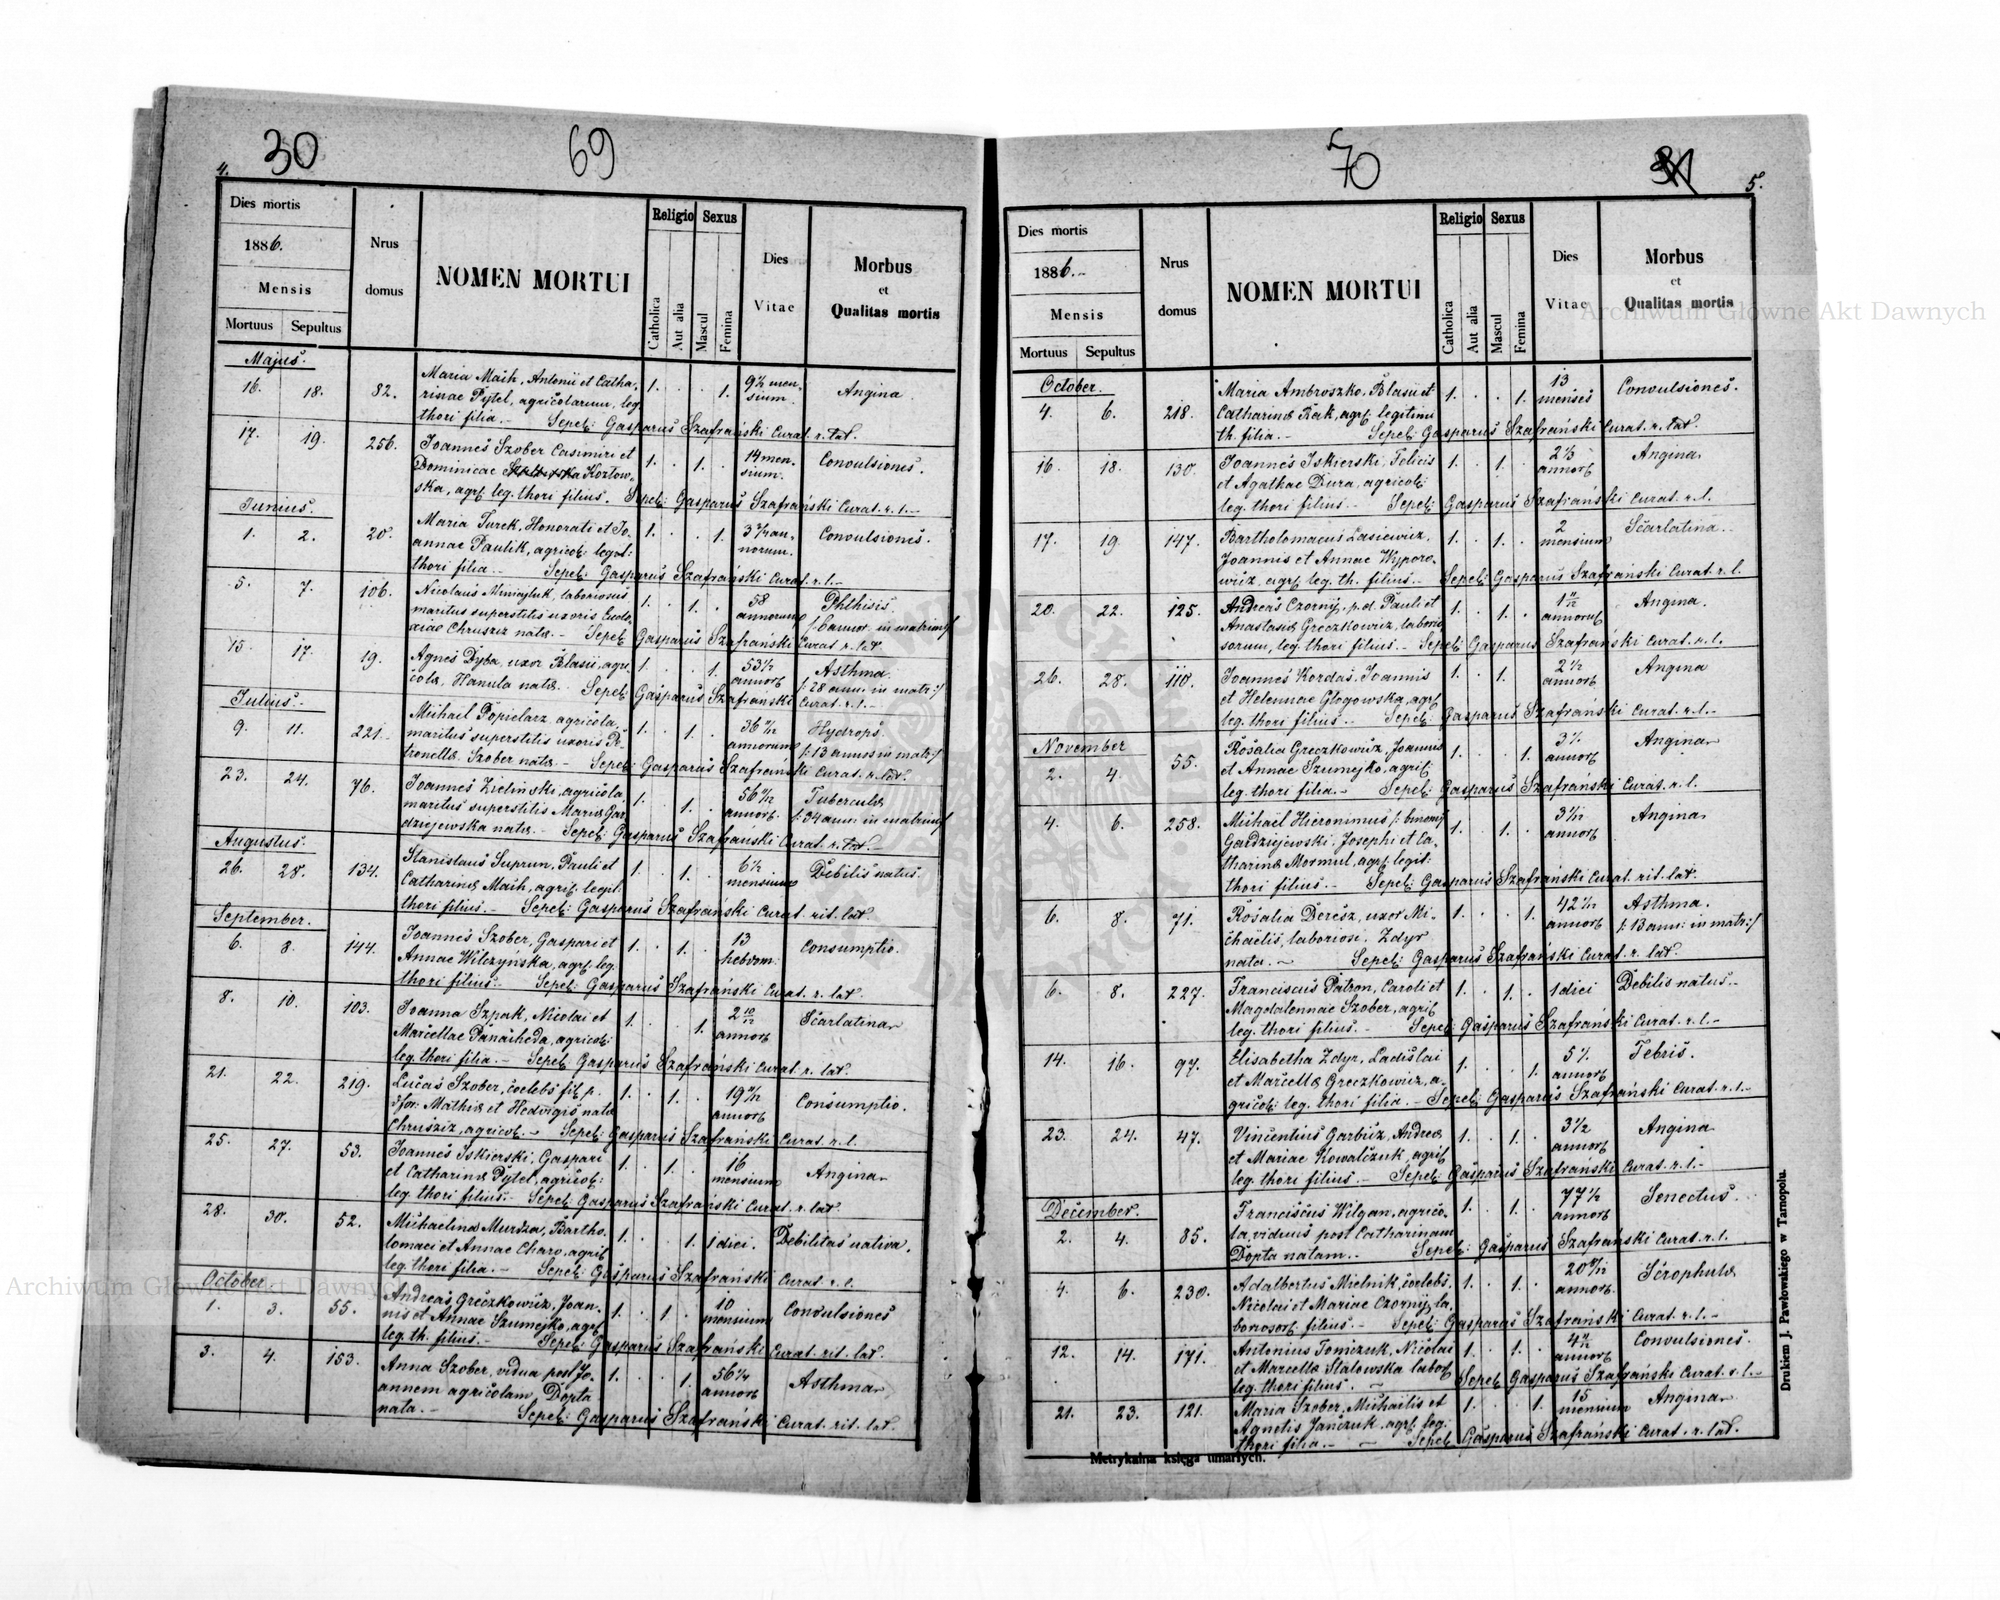 30
69
4.
Dies mortis
1886.
Mensis
Mortuus Sepultus
Nrus domus
NOMEN MORTUI
Religio
Catholica
Aut alia
Sexus
Mascul
Femina
Dies Vitae
Morbus
et
Qualitas mortis
Majus.
16. 18. 82. Maria Maih, Antonii et Catha- 1. . . 1. 9½ men- Angina
rinae Pytel, agricolarum, leg. sium.
thori filia.- Sepel: Gasparus Szafrański Curat. r. lat.
17. 19. 256. Joannes Szober Casimiri et 1. . 1. . 14 men- Convulsiones.
Dominicae Kozłow- sium.
ska, agr. leg. thori filius. Sepel: Gasparus Szafrański Curat. r. l.-
Junius.
1. 2. 20. Maria Turek, Honorati et Jo- 1. . . 1. 3 an- Convulsiones.
annae Paulik, agricol: legit: norum.
thori filia.- Sepel: Gasparus Szafrański Curat. r. l.-
5. 7. 106. Nicolaus laboriosus 1. . 1. . 58 Phthisis.
maritus superstitis uxoris Eudo- annorum in matrim:/
xiae Chrusziz natae.- Sepel: Gasparus Szafrański Curat. r. lat.
15. 17. 19. Agnes Dyba, uxor Blasii, agri- 1. . . 1. 53½ Asthma.
colae, Hanula natae. annor. /: 28 ann: in matr:/
Sepel: Gasparus Szafrański Curat. r. l.-
Julius.-
9. 11. 221. Michael Popielarz, agricola, 1. . 1. . 36 Hydrops.
maritus superstitis uxoris Pe- annorum /: 13 annos in matr:/
tronellae Szober natae.- Sepel: Gasparus Szafrański Curat. r. lat.
23. 24. 76. Joannes Zieliński, agricola, 1. . 1. . 56 Tuberculae
maritus superstitis Mariae Gar- annor. /: 34 ann: in matrim:/
dziejewska natae.- Sepel: Gasparus Szafrański Curat. r. lat.-
Augustus.
26. 28. 134. Stanislaus Suprun, Pauli et 1. . 1. . 6½ Debilis natus.
Catharinae Maih, agr. legit: mensium
thori filius.- Sepel: Gasparus Szafrański Curat. rit. lat.
September.
6. 8. 144. Joannes Szober, Gaspari et 1. . 1. . 13 Consumptio.
Annae Wilczyńska, agr. leg. hebdom.
thori filius.- Sepel: Gasparus Szafrański Curat. r. lat.
8. 10. 103. Joanna Szpak, Nicolai et 1. . . 1. 2 10/12 Scarlatina
Marcellae Panacheda, agricol: annor.
leg. thori filia.- Sepel: Gasparus Szafrański Curat. r. lat.
21. 22. 219. Lucas Szober, coelebs fil. p. 1. . 1. . 19 Consumptio.
Mathiae et Hedvigis natae annor.
Chrusziz, agricol.- Sepel: Gasparus Szafrański Curat. r. l.
25. 27. 53. Joannes Iskierski, Gaspari 1. . 1. . 16 Angina
et Catharinae Pytel, agricol: mensium
leg. thori filius.- Sepel: Gasparus Szafrański Curat. r. lat.
28. 30. 52. Michaelina Murdza, Bartho- 1. . . 1. 1 diei. Debilitas nativa.
lomaei et Annae Charo, agric.
leg. thori filia.- Sepel: Gasparus Szafrański Curat. r. l.
October
1. 3. 55. Andreas Greczkowicz, Joan- 1. . 1. . 10 Convulsiones
nis et Annae Szumejko, agr. mensium
leg. th. filius.- Sepel: Gasparus Szafrański Curat. rit. lat.
3. 4. 153. Anna Szober, vidua post Jo- 1. . . 1. 56¼ Asthma
annem agricolam, Dopta annor.
nata.- Sepel: Gasparus Szafrański Curat. rit. lat.
70
5.
Dies mortis
1886.-
Mensis
Mortuus Sepultus
Nrus domus
NOMEN MORTUI
Religio
Catholica
Aut alia
Sexus
Mascul
Femina
Dies Vitae
Morbus
et
Qualitas mortis
October.
4. 6. 218. Maria Ambroszko, Blasii et 1. . . 1. 13 Convulsiones.
Catharinae Rak, agr. legitimi menses
th. filia.- Sepel: Gasparus Szafrański Curat. r. lat.
16. 18. 130. Joannes Iskierski, Felicis 1. . 1. . annor. Angina
et Agathae Dura, agricol:
leg. thori filius.- Sepel: Gasparus Szafrański Curat. r. l.
17. 19 147. Bartholomaeus Lasiewicz, 1. . 1. . 2 Scarlatina.-
Joannis et Annae Wyporo- mensium
wicz, agr. leg. th. filius.- Sepel: Gasparus Szafrański Curat. r. l.
20. 22. 125. Andreas Czornij, p. d. Pauli et 1. . 1. . 1 11/12 Angina.
Anastasiae Greczkowicz, laborio- annorum
sorum, leg. thori filius.- Sepel: Gasparus Szafrański Curat. r. l.
26. 28. 110. Joannes Kordas, Joannis 1. . 1. . 2½ Angina
et Helennae Glogowska, agr. annor.
leg. thori filius.- Sepel: Gasparus Szafrański Curat. r. l.-
November
2. 4. 55. Rosalia Greczkowicz, Joannis 1. . . 1. annor. Angina
et Annae Szumejko, agric.
leg. thori filia.- Sepel: Gasparus Szafrański Curat. r. l.
4. 6. 258. Michael Hieronimus /: binomi:/ 1. . 1. . annor. Angina
Gardziejewski, Josephi et Ca-
tharinae Mormul, agr. legit:
thori filius.- Sepel: Gasparus Szafrański Curat. rit. lat.
6. 8. 71. Rosalia Deresz, uxor Mi- 1. . . 1. 42 Asthma.
chaelis, laboriosi, Zdyr annor. /: 13 ann: in matr:/
nata.- Sepel: Gasparus Szafrański Curat. r. lat.
6. 8. 227. Franciscus Patron, Caroli et 1. . 1. . 1 diei Debilis natus.-
Magdalennae Szober, agric.
leg. thori filius.- Sepel: Gasparus Szafrański Curat. r. l.-
14. 16. 97. Elisabetha Zdyr, Ladislai 1. . . 1. annor. Febris.
et Marcellae Greczkowicz, a-
gricol: leg. thori filia.- Sepel: Gasparus Szafrański Curat. r. l.-
23. 24. 47. Vincentius Garbicz, Andreae 1. . 1. . 3½ Angina
et Mariae Kowalczuk, agric. annor.
leg. thori filius.- Sepel: Gasparus Szafrański Curat. r. l.-
December.
2. 4. 85. Franciscus Wilgan, agrico- 1. . 1. . 77½ Senectus.
la, viduus post Catharinam annor.
Dopta natam.- Sepel: Gasparus Szafrański Curat. r. l.
4. 6. 230. Adalbertus Mielnik, coelebs, 1. . 1. . 20 Scrophulae
Nicolai et Mariae Czornij, la- annor.
boriosor. filius.- Sepel: Gasparus Szafrański Curat. r. l.-
12. 14. 171. Antonius Tomczuk, Nicolai 1. . 1. . annor. Convulsiones.
et Marcellae Stalowska labor.
leg. thori filius.- Sepel: Gasparus Szafrański Curat. r. l.-
21. 23. 121. Maria Szober, Michaelis et 1. . . 1. 15 Angina
Agnetis Janczuk, agr. leg: mensium
thori filia.- Sepel: Gasparus Szafrański Curat. r. lat.
Metrykalna księga umarłych.
Drukiem J. Pawłowskiego w Tarnopolu.
Archiwum Główne Akt Dawnych
Archiwum Główne Akt Dawnych